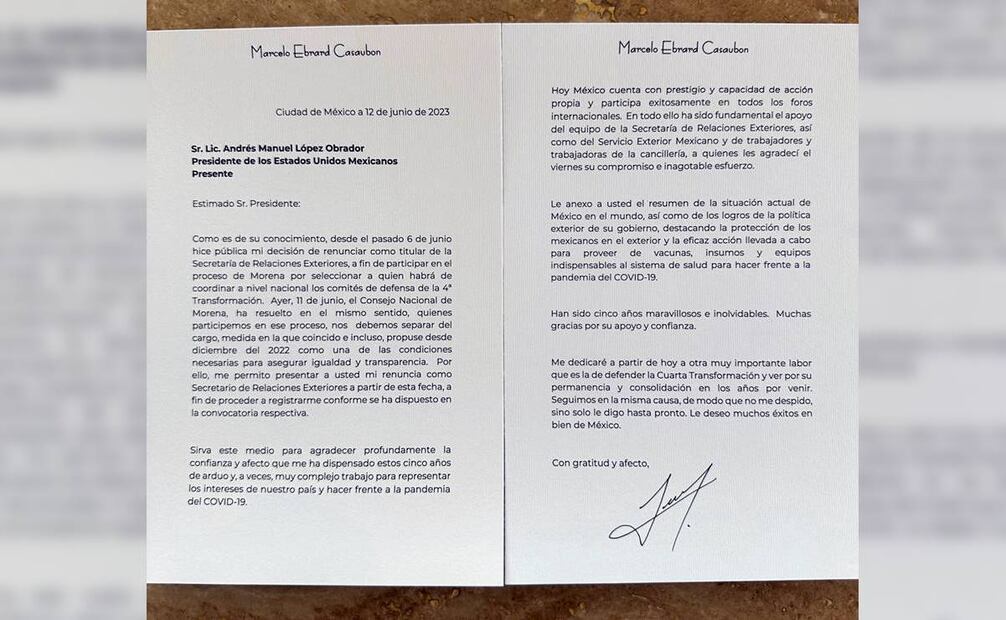 Marcelo Ebrard Casaubon
Ciudad de México a 12 de junio de 2023
Sr. Lic. Andrés Manuel López Obrador
Presidente de los Estados Unidos Mexicanos
Presente
Estimado Sr. Presidente:
Como es de su conocimiento, desde el pasado 6 de junio
hice pública mi decisión de renunciar como titular de la
Secretaría de Relaciones Exteriores, a fin de participar en el
proceso de Morena por seleccionar a quien habrá de
coordinar a nivel nacional los comités de defensa de la 4ª
Transformación. Ayer, 11 de junio, el Consejo Nacional de
Morena, ha resuelto en el mismo sentido, quienes
participemos en ese proceso, nos debemos separar del
cargo, medida en la que coincido e incluso, propuse desde
diciembre del 2022 como una de las condiciones
necesarias para asegurar igualdad y transparencia. Por
ello, me permito presentar a usted mi renuncia como
Secretario de Relaciones Exteriores a partir de esta fecha, a
fin de proceder a registrarme conforme se ha dispuesto en
la convocatoria respectiva.
Sirva este medio para agradecer profundamente la
confianza y afecto que me ha dispensado estos cinco años
de arduo y, a veces, muy complejo trabajo para representar
los intereses de nuestro país y hacer frente a la pandemia
del COVID-19.
Marcelo Ebrard Casaubon
Hoy México cuenta con prestigio y capacidad de acción
propia y participa exitosamente en todos los foros
internacionales. En todo ello ha sido fundamental el apoyo
del equipo de la Secretaría de Relaciones Exteriores, así
como del Servicio Exterior Mexicano y de trabajadores y
trabajadoras de la cancillería, a quienes les agradecí el
viernes su compromiso e inagotable esfuerzo.
Le anexo a usted el resumen de la situación actual de
México en el mundo, así como de los logros de la política
exterior de su gobierno, destacando la protección de los
mexicanos en el exterior y la eficaz acción llevada a cabo
para proveer de vacunas, insumos y equipos
indispensables al sistema de salud para hacer frente a la
pandemia del COVID-19.
Han sido cinco años maravillosos e inolvidables. Muchas
gracias por su apoyo y confianza.
Me dedicaré a partir de hoy a otra muy importante labor
que es la de defender la Cuarta Transformación y ver por su
permanencia y consolidación en los años por venir.
Seguimos en la misma causa, de modo que no me despido,
sino solo le digo hasta pronto. Le deseo muchos éxitos en
bien de México.
Con gratitud y afecto,